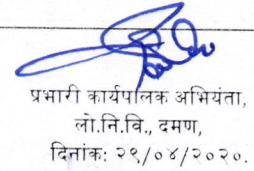 प्रभारी कार्यपालक अभियंता,
लो.नि.वि., दमण,
दिनांक: २९/०४/२०२०.